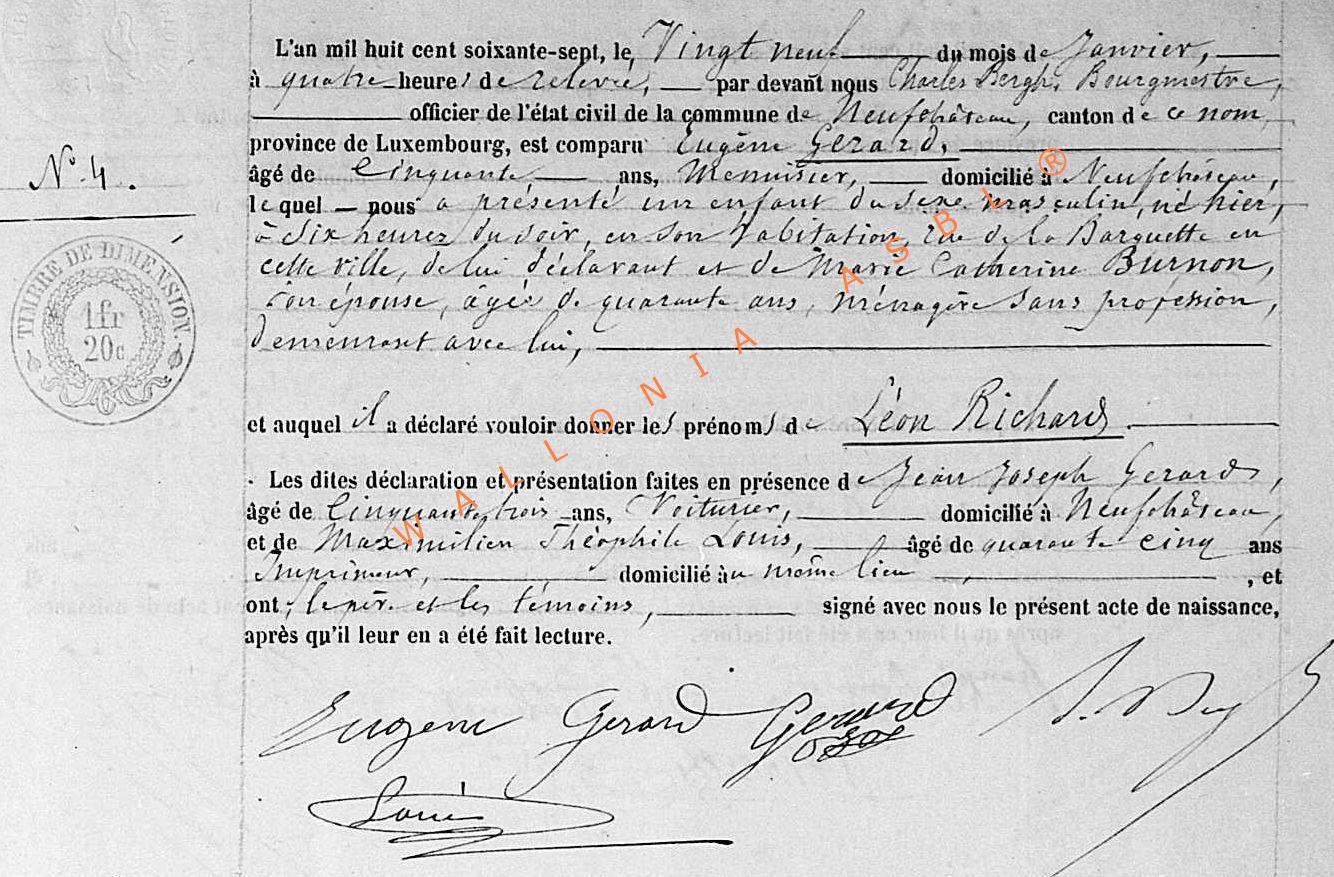 L'an mil huit cent soixante-sept, le Vingt neuf du mois de Janvier,
à quatre heures de relevée, par devant nous Charles Bergh, Bourgmestre,
officier de l'état civil de la commune de Neufchâteau, canton de ce nom,
province de Luxembourg, est comparu Eugène Gerard,
N° 4.
âgé de Cinquante ans, Menuisier, domicilié à Neufchâteau,
lequel nous a présenté un enfant du sexe masculin, né hier,
à six heures du soir, en son habitation, rue de la Barquette en
cette ville, de lui déclarant et de Marie Catherine Burnon,
son épouse, âgée de quarante ans, ménagère sans profession,
demeurant avec lui,
TIMBRE DE DIMENSION.
1fr
20c
et auquel il a déclaré vouloir donner les prénoms de Léon Richard
Les dites déclaration et présentation faites en présence de Jean Joseph Gerard,
âgé de Cinquante trois ans, Voiturier, domicilié à Neufchâteau,
et de Maximilien Théophile Louis, âgé de quarante cinq ans
Imprimeur, domicilié au même lieu, et
ont, le père et les témoins, signé avec nous le présent acte de naissance,
après qu'il leur en a été fait lecture.
Eugène Gerard Gerard
Louis
WALLONIA ASBL ®